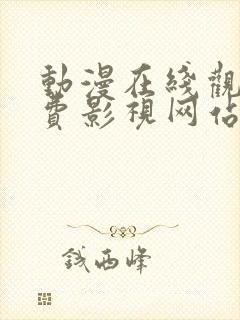 動漫在綫觀
費影視网佔
钱西峰